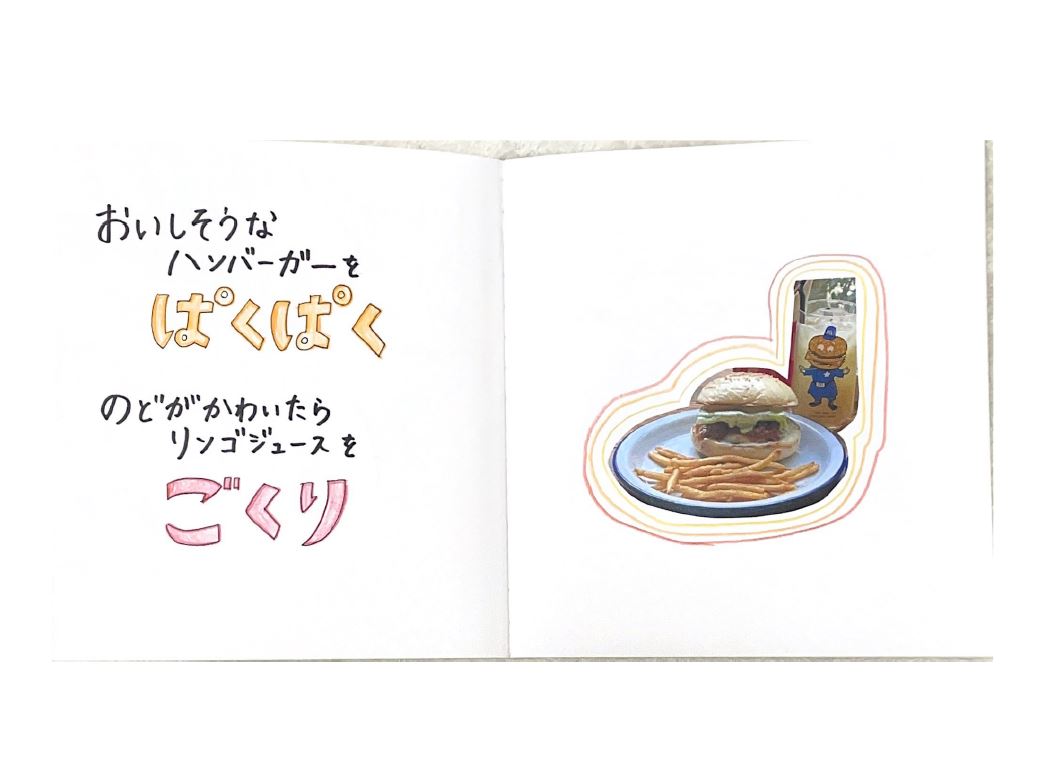 おいしそうな
ハンバーガーを
ぱくぱく
のどがかわいたら
リンゴジュースを
ごくり